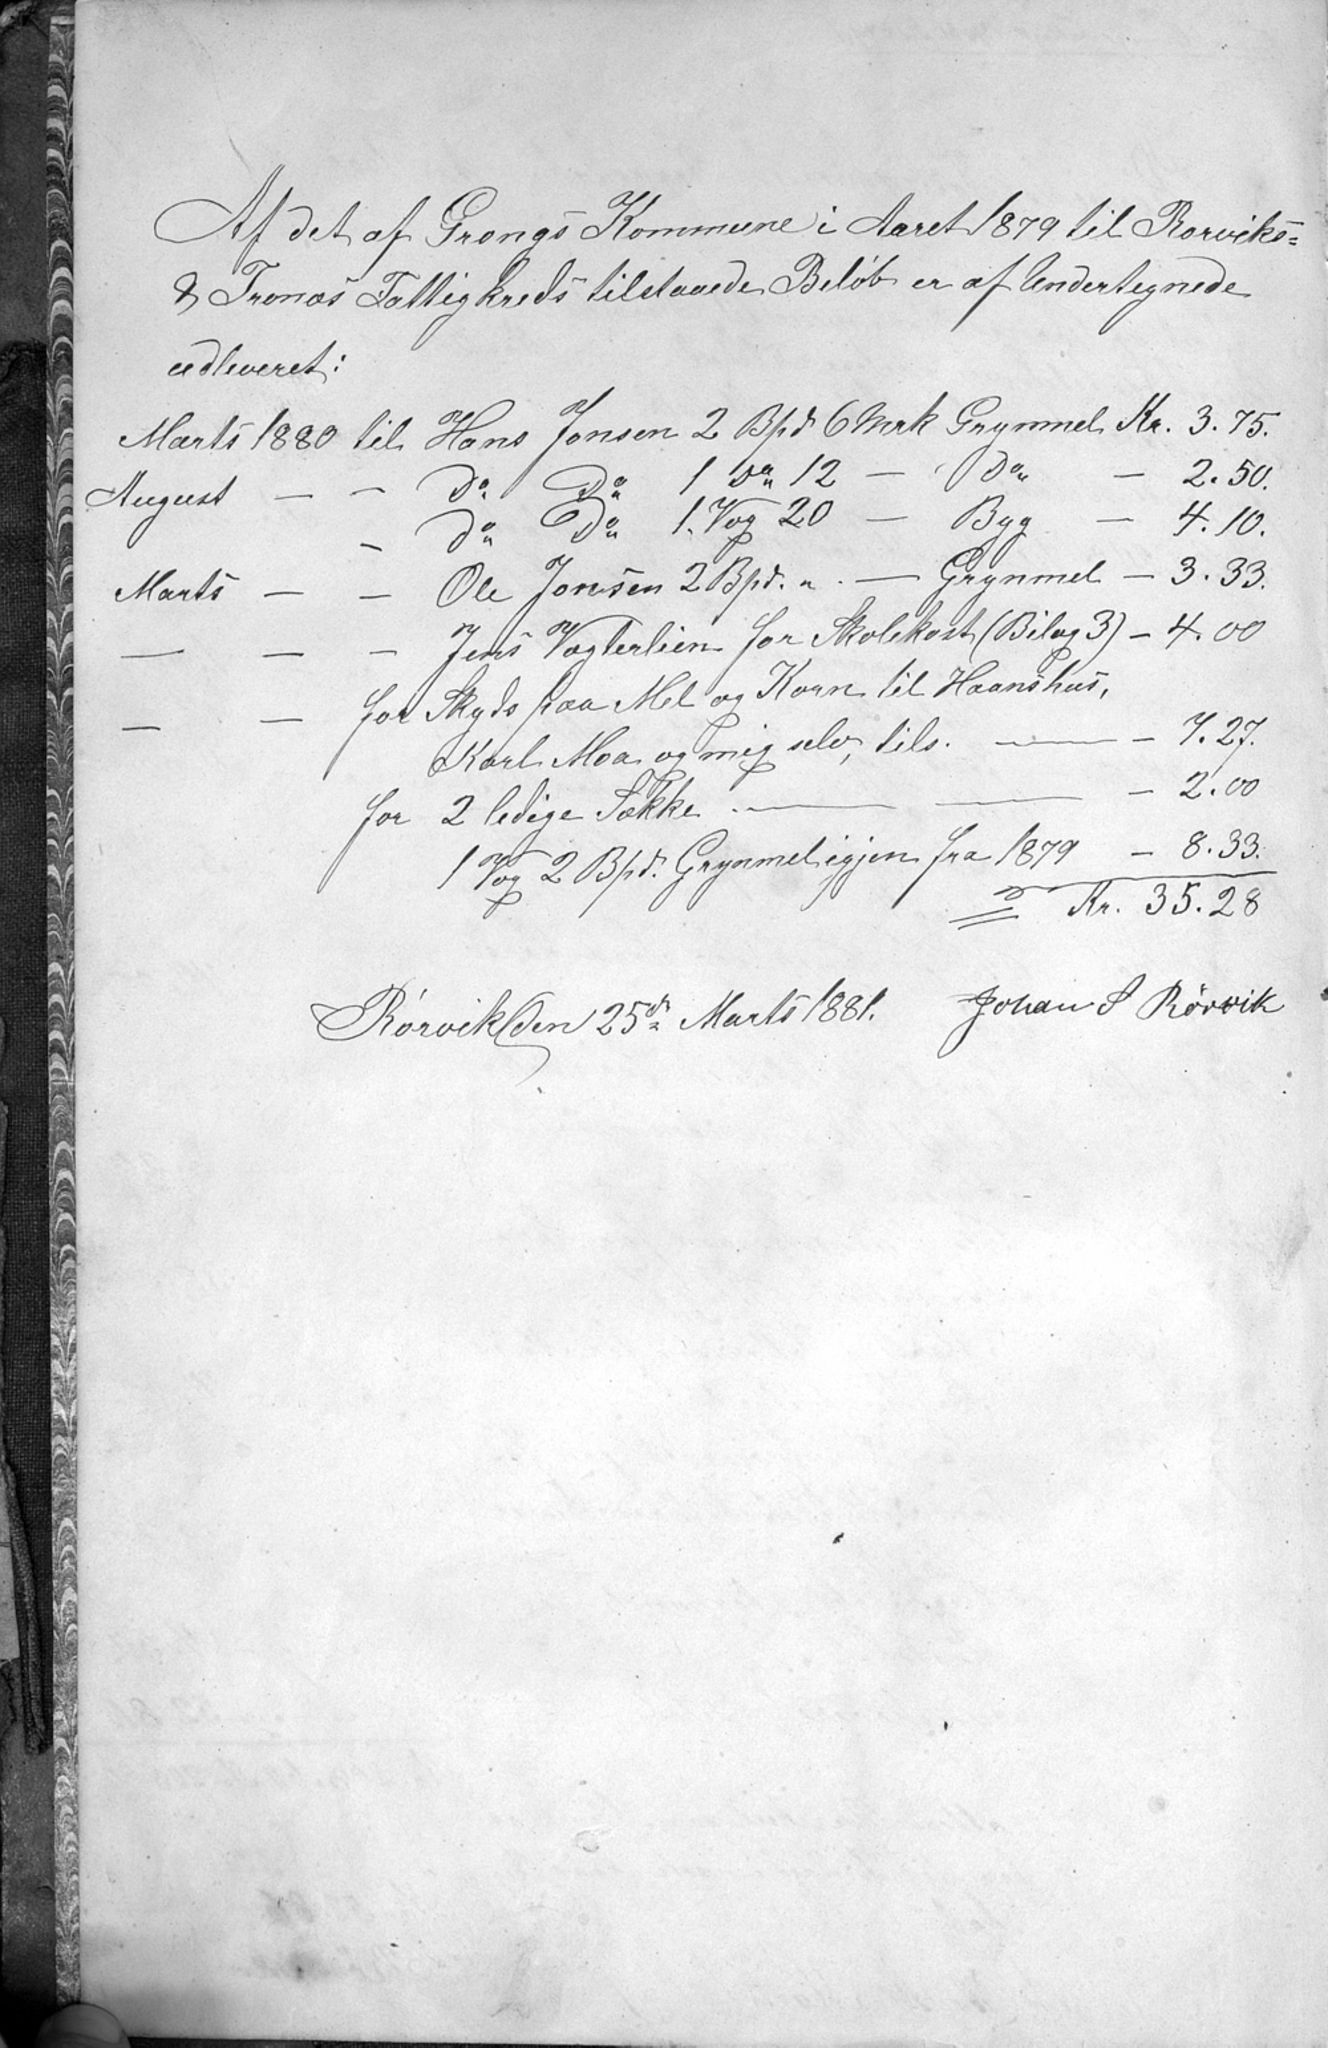 Af det af Grongs Kommune i Aaret 1879 til Rorviks=
& Tronæs Fattigkreds tilstaaede Beløb er af Undertegnede
udleveret:
Marts 1880 til Hans Jonsen 2 Bpd 6 Mrk Grynmel Kr. 3.75.
August — — do do 1 do 12 — do — 2.50.
— do do 1. Vog 20 — Byg — 4.10.
Marts — — Ole Jonsen 2 Bpd. „ . — Grynmel — 3.33.
— — — Jens Vogterlien for Skolekost (Bilag 3) — 4.00
— — for Skyds paa Mel og Korn til Haanshus,
Karl Moa og mig selv, tils. — — 7.27.
for 2 ledige Sække — — — 2.00
1 Vog 2 Bpd. Grynmel igjen fra 1879 — 8.33.
Kr. 35.28
Rørvik den 25de Marts 1881. Johan S Rørvik